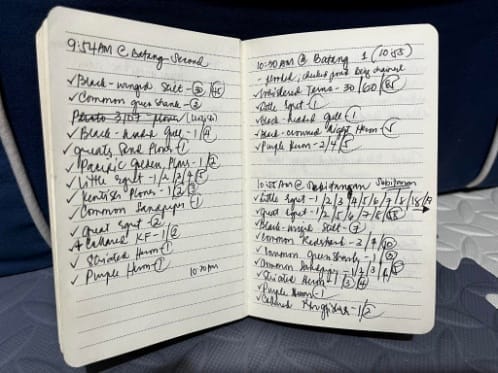 9:54AM @ Batang Second
✓ Black-winged Stilt - 30/45
✓ Common greenshank - 2
✓ Black-headed Gull - 1/9
✓ Greater Sand Plover - 1
✓ Pacific Golden Plover - 1/2
✓ Little Egret - 1/2/3/4/5
✓ Kentish Plover - 1/2/3
✓ Common Sandpiper - 1
✓ Great Egret - 2
✓ Collared KF - 1/2
✓ Striated Heron - 1
✓ Purple Heron - 1
10:20AM
10:30AM @ Batang 1 (10:53)
- flooded, pond being drained
✓ Whiskered Terns - 30/60/
✓ Little Egret - 1
✓ Black-headed Gull - 1
✓ Black-crowned Night Heron -
✓ Purple Heron - 2/4/5
10:55AM @ Sapitangan
✓ Little Egret - 1/2/3/4/5/6/7/8/18/19
✓ Great Egret - 1/2/5/6/7/8/
✓ Black-winged Stilt - 7
✓ Common Redshank - 3/7/10
✓ Common Greenshank - 1/2
✓ Common Sandpiper - 1/2/3/4/5
✓ Striated Heron - 1/3/4
✓ Purple Heron - 1
✓ Collared Kingfisher - 1/2